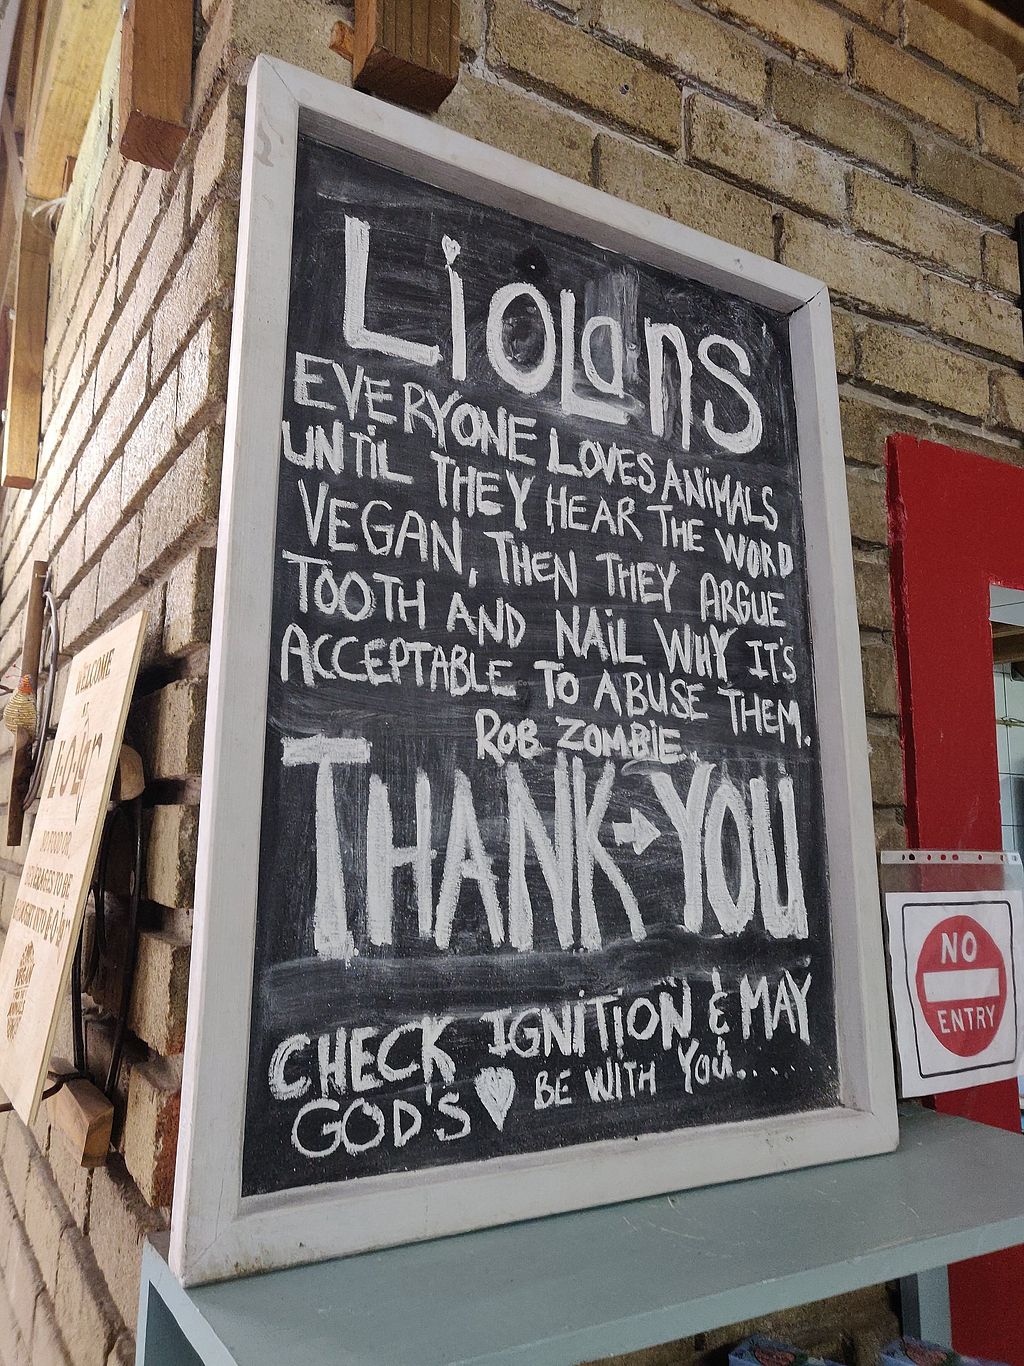 Liolans
EVERYONE LOVES ANiMALS
UNTiL THEY HEAR THE WORD
VEGAN, THEN THEY ARGUE
TOOTH AND NAiL WHY IT'S
ACCEPTABLE TO ABUSE THEM.
ROB ZOMBiE..
THANK → YOU
CHECK IGNITiON & MAY
GOD'S ♥ BE WiTH YOU......
NO
ENTRY
WELCOME